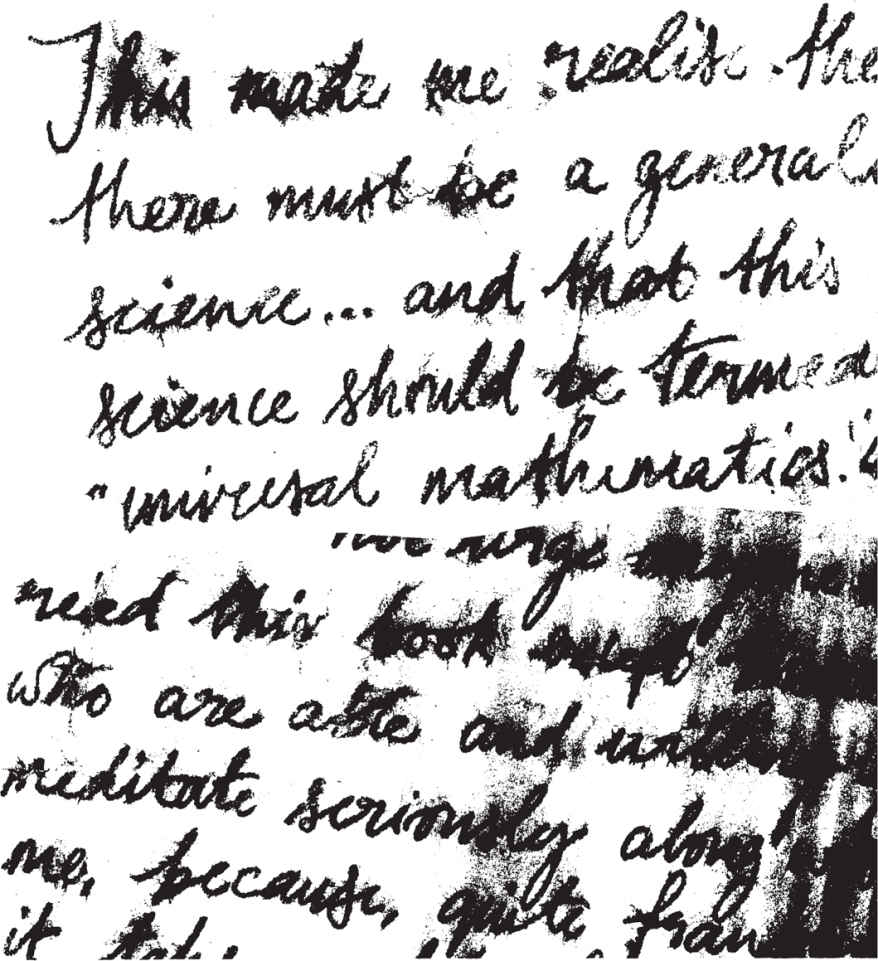 This made me realise the
there must be a general
science... and that this
science should be termed
"universal mathematics."
not urge
read this book except
who are able and willing
meditate seriously along
me, because, quite fran
it